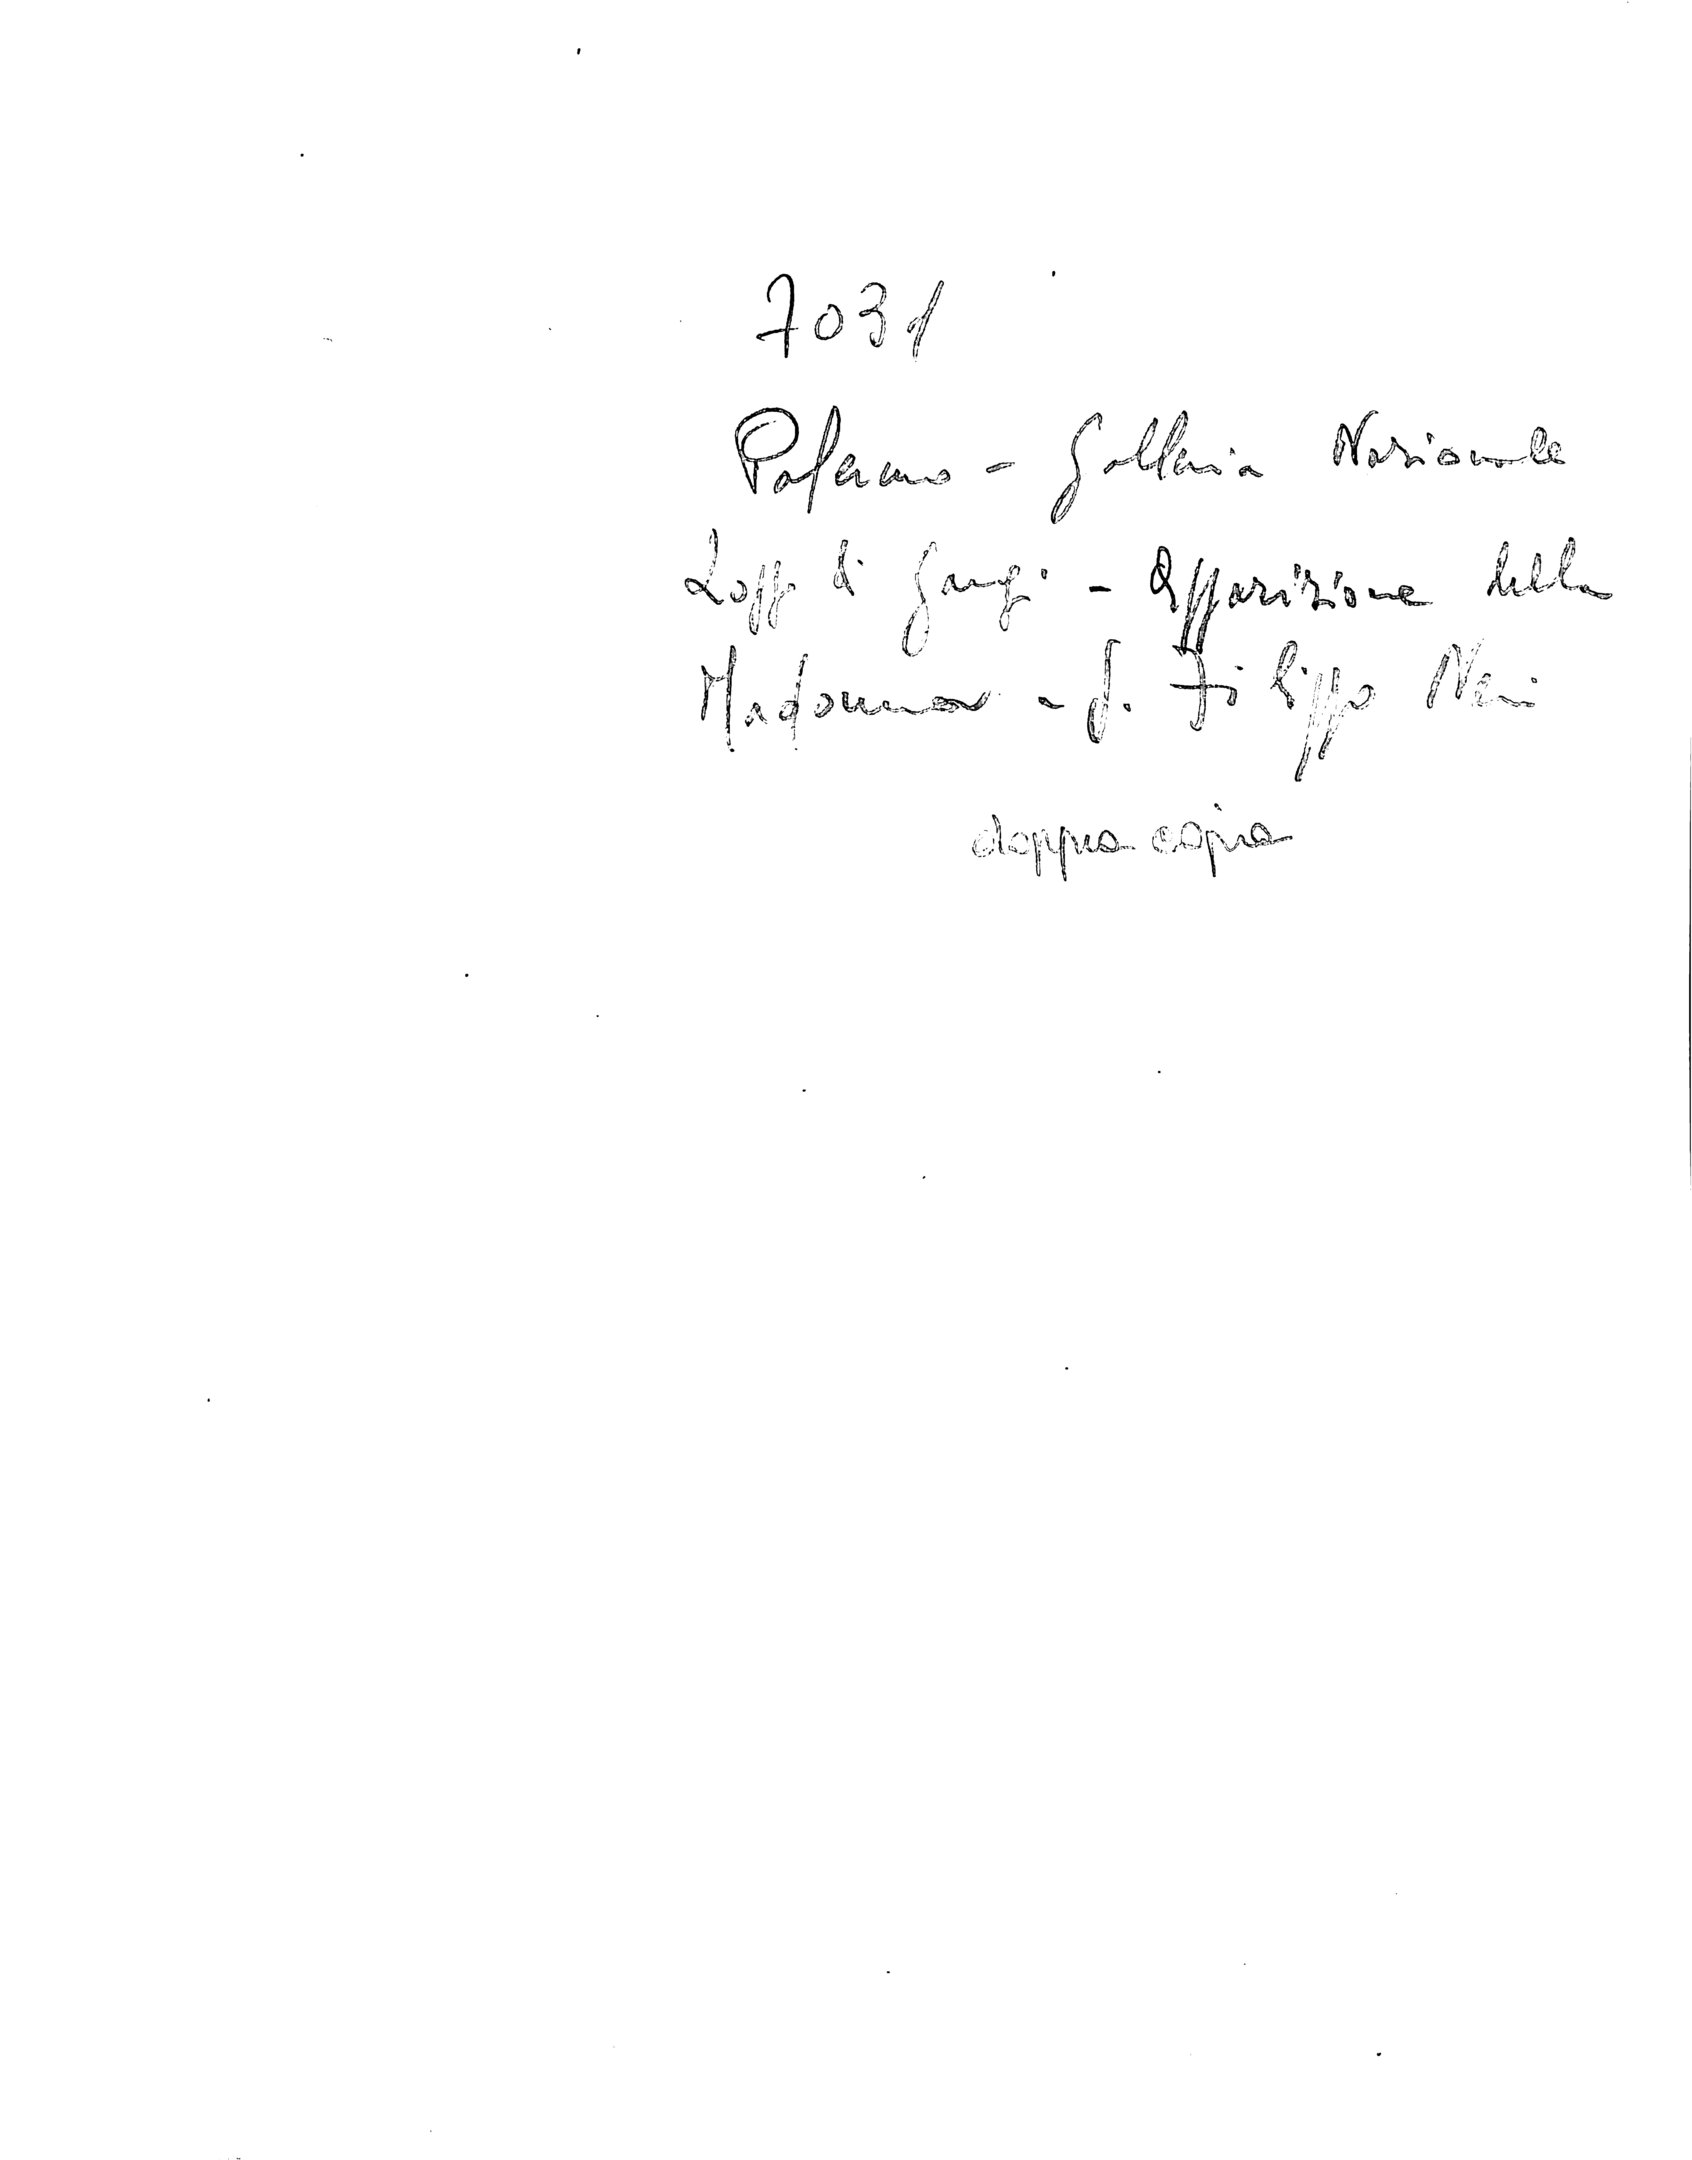 7031
Palermo - Galleria Nazionale
Zoppo di Gangi - Apparizione della
Madonna a S. Filippo Neri
doppia copia